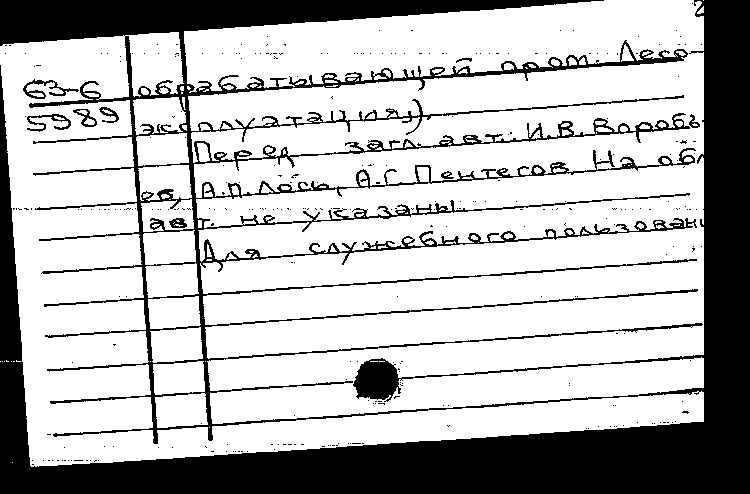 2
63-6 обрабатывающей пром. Лесо-
5989 эксплуатация).
Перед загл. авт.: И.В. Воробь-
ев, А.П. Лось, А.Г. Пентегов. На обл
авт. не указаны.
Для служебного пользовани